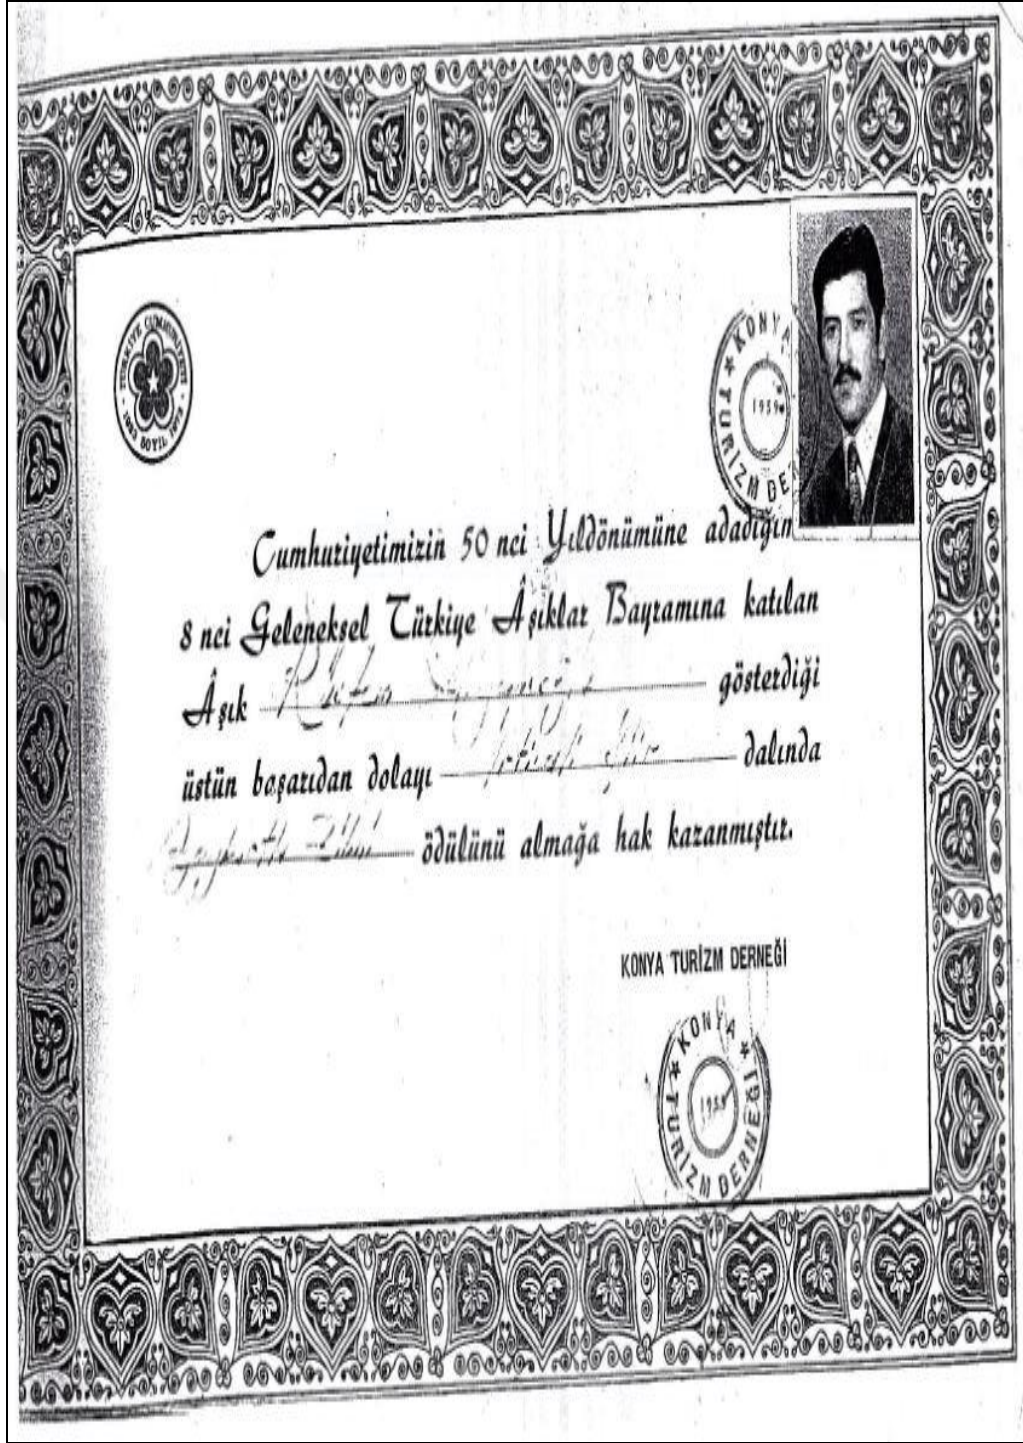 TÜRKİYE CUMHURİYETİ
1923 50 YIL 1973
KONYA
TURİZM DE
1959
Cumhuriyetimizin 50 nci Yıldönümüne adadığın
8 nci Geleneksel Türkiye Âşıklar Bayramına katılan
Âşık gösterdiği
üstün başarıdan dolayı dalında
ödülünü almağa hak kazanmıştır.
KONYA TURİZM DERNEĞİ
KONYA
TURİZM DERNEĞİ